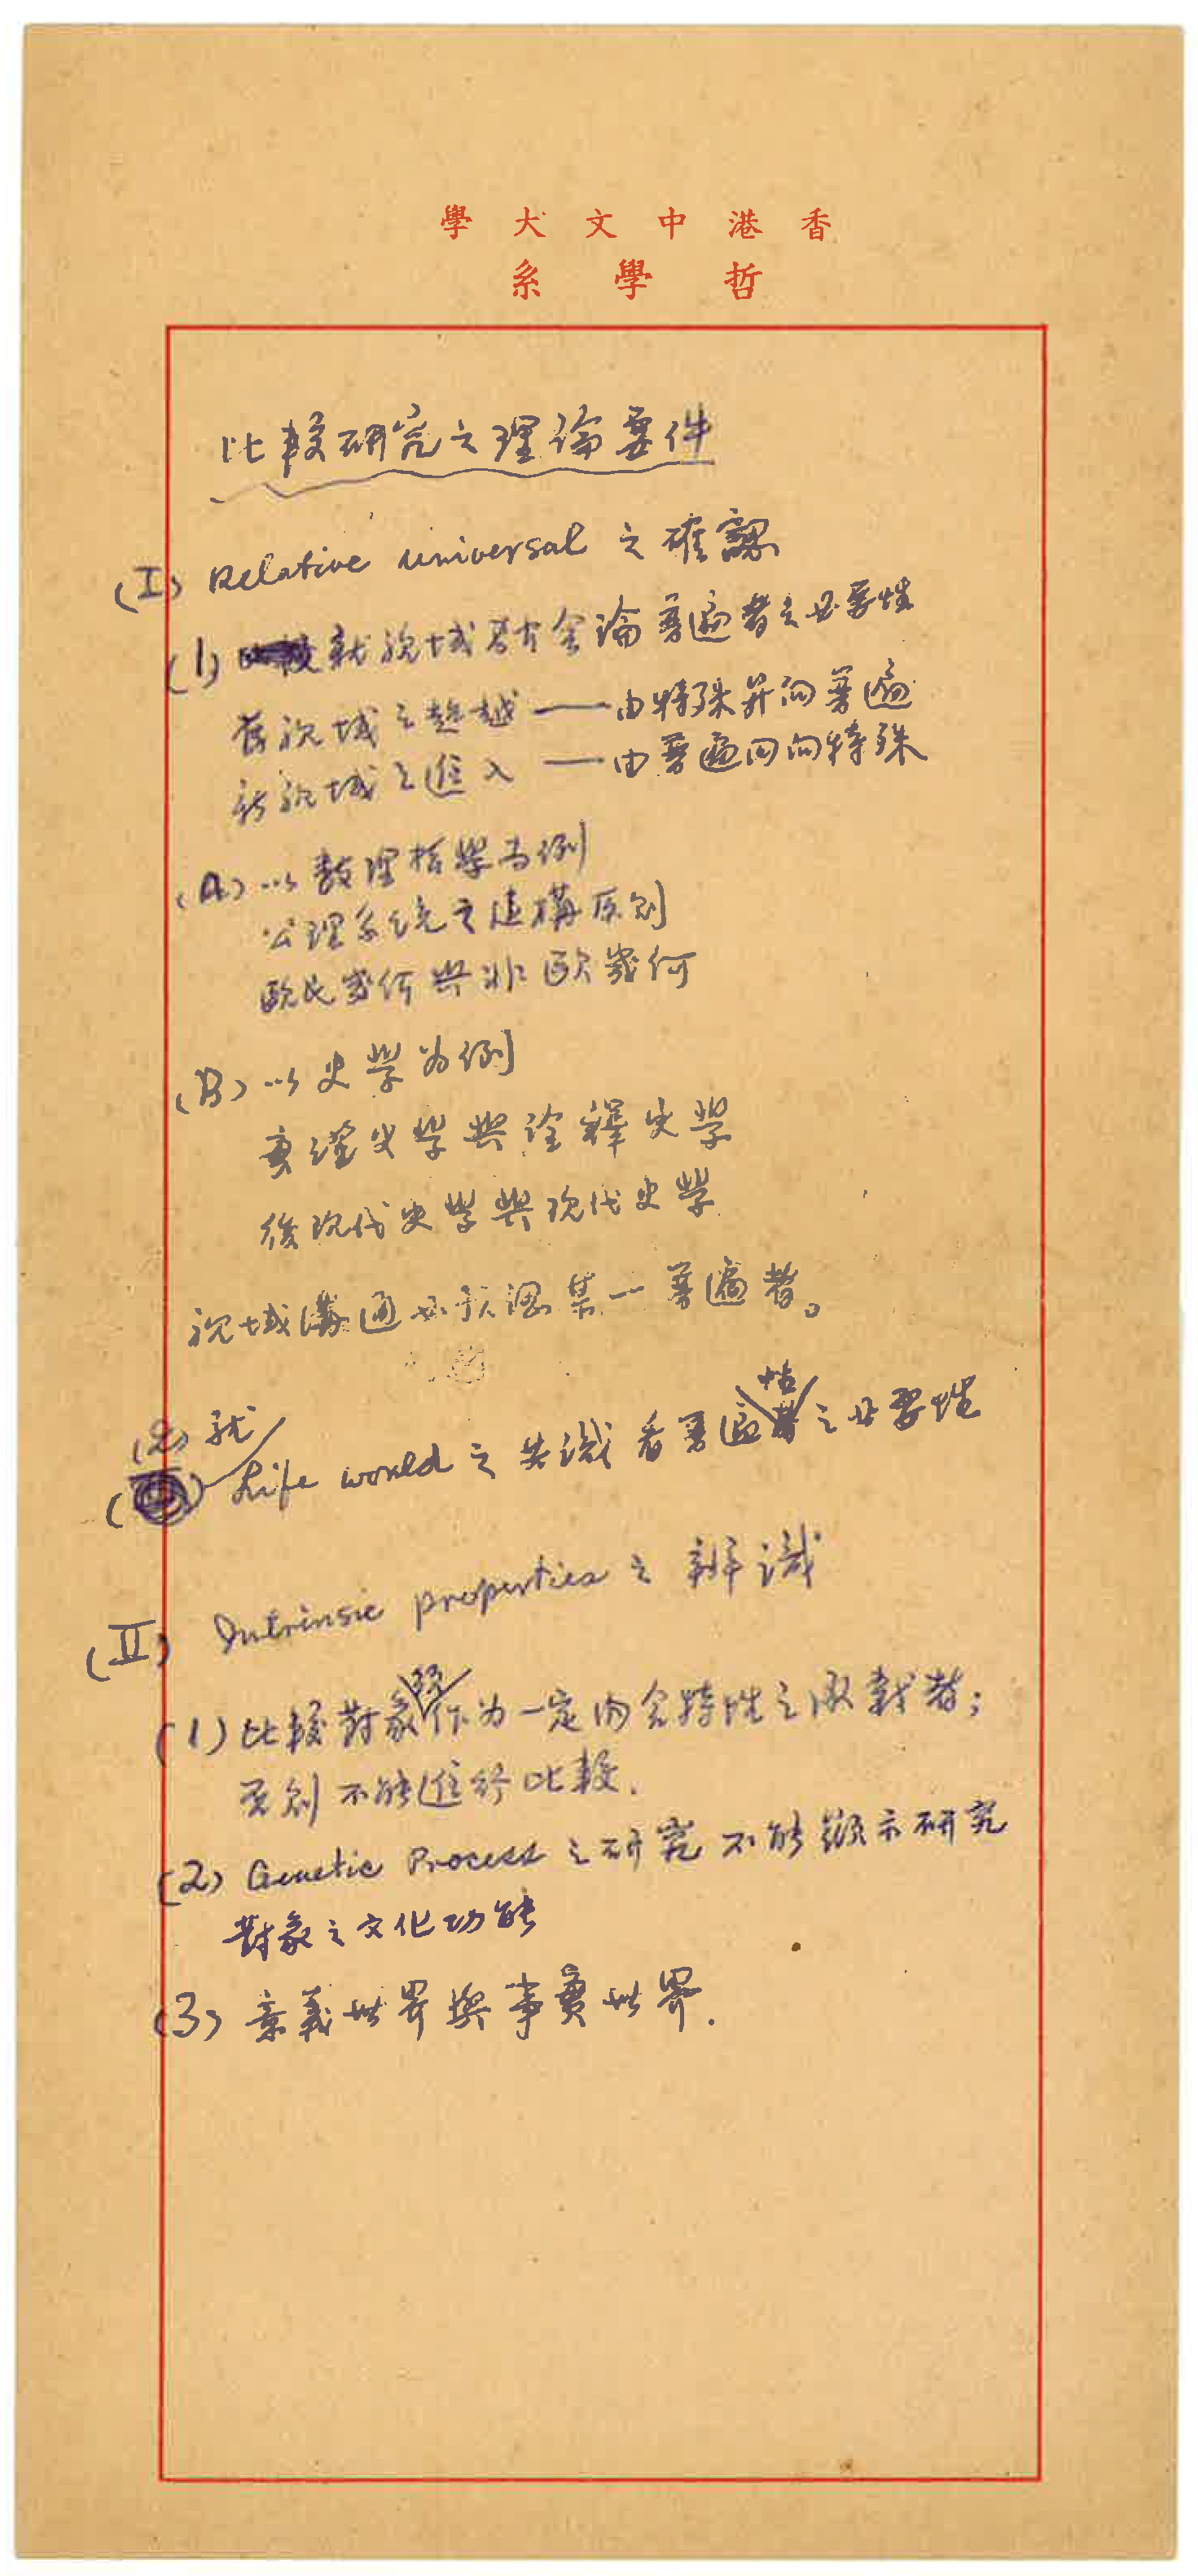 香港中文大學
哲學系
比較研究之理論要件
(I) Relative universal 之確認
(1) 就視域替古舍論普遍者之必要性
舊視域之超越——由特殊昇向普遍
新視域之進入——由普遍回向特殊
(A) 以數理哲學為例
公理系統之建構原則
歐氏幾何與非歐幾何
(B) 以史學為例
實證史學與詮釋史學
後現代史學與現代史學
視域溝通必預認某一普遍者。
(2) 就 Life world 之共識看普遍性之必要性
(II) Intrinsic properties 之辨識
(1) 比較對象 作為一定內含特性之承載者;
否則不能進行比較.
(2) Genetic Process 之研究不能顯示研究
對象之文化功能
(3) 意義世界與事實世界.